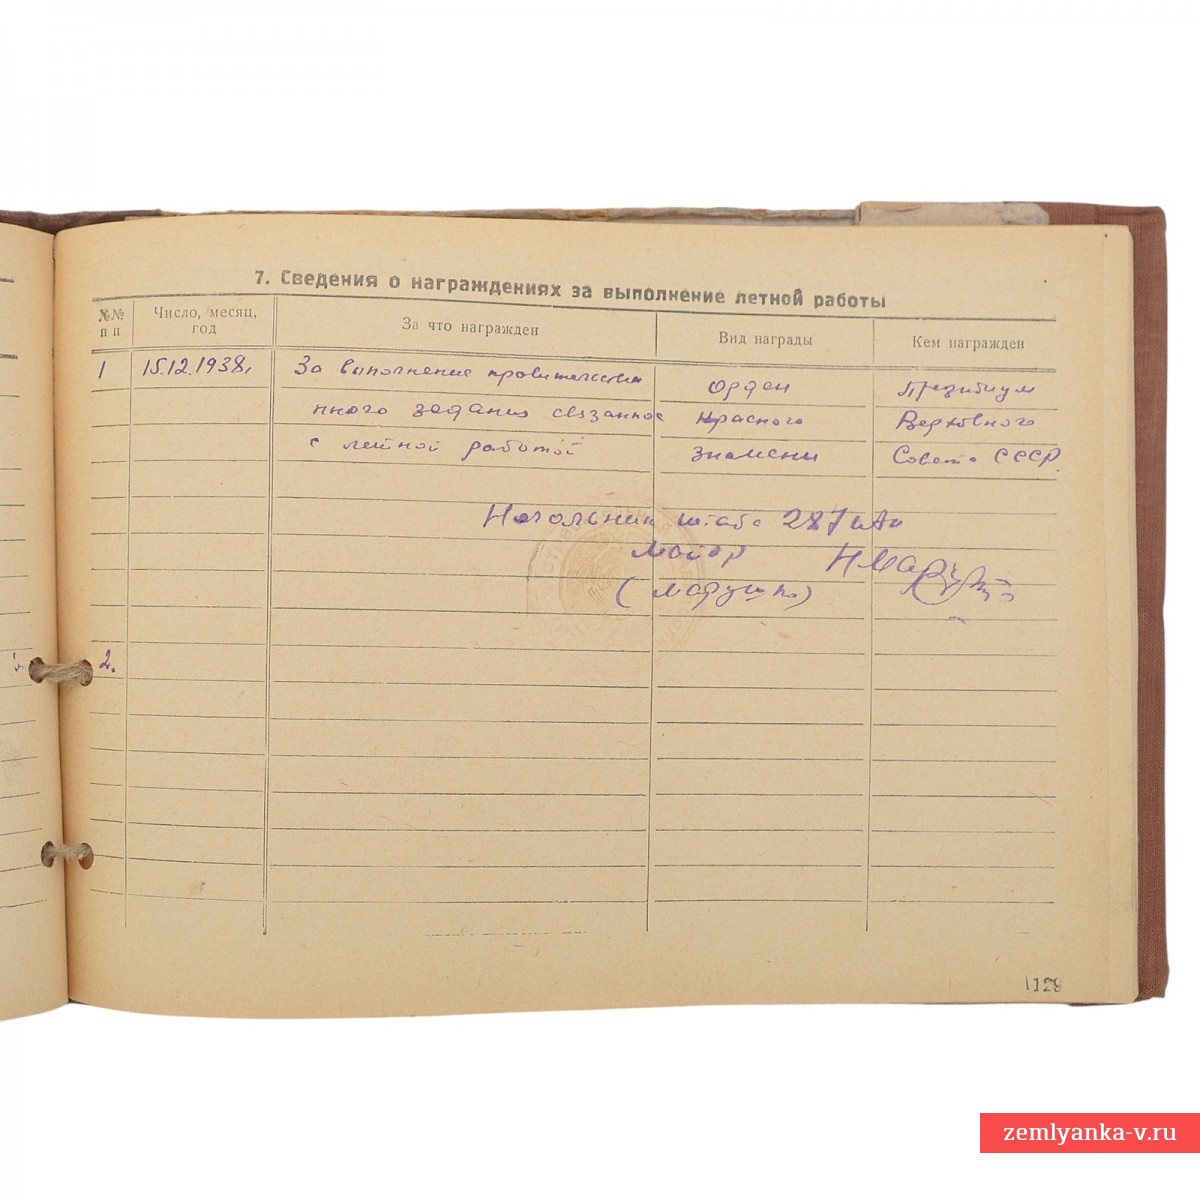 7. Сведения о награждениях за выполнение летной работы
№№ п п
Число, месяц, год
За что награжден
Вид награды
Кем награжден
1 15.12.1938г. За выполнение правительствен Орден Президиум
нного задания связанное Красного Верховного
с летной работой Знамени Совета СССР.
Начальник штаба 287
Майор
(Марушко)
2.
129
zemlyanka-v.ru